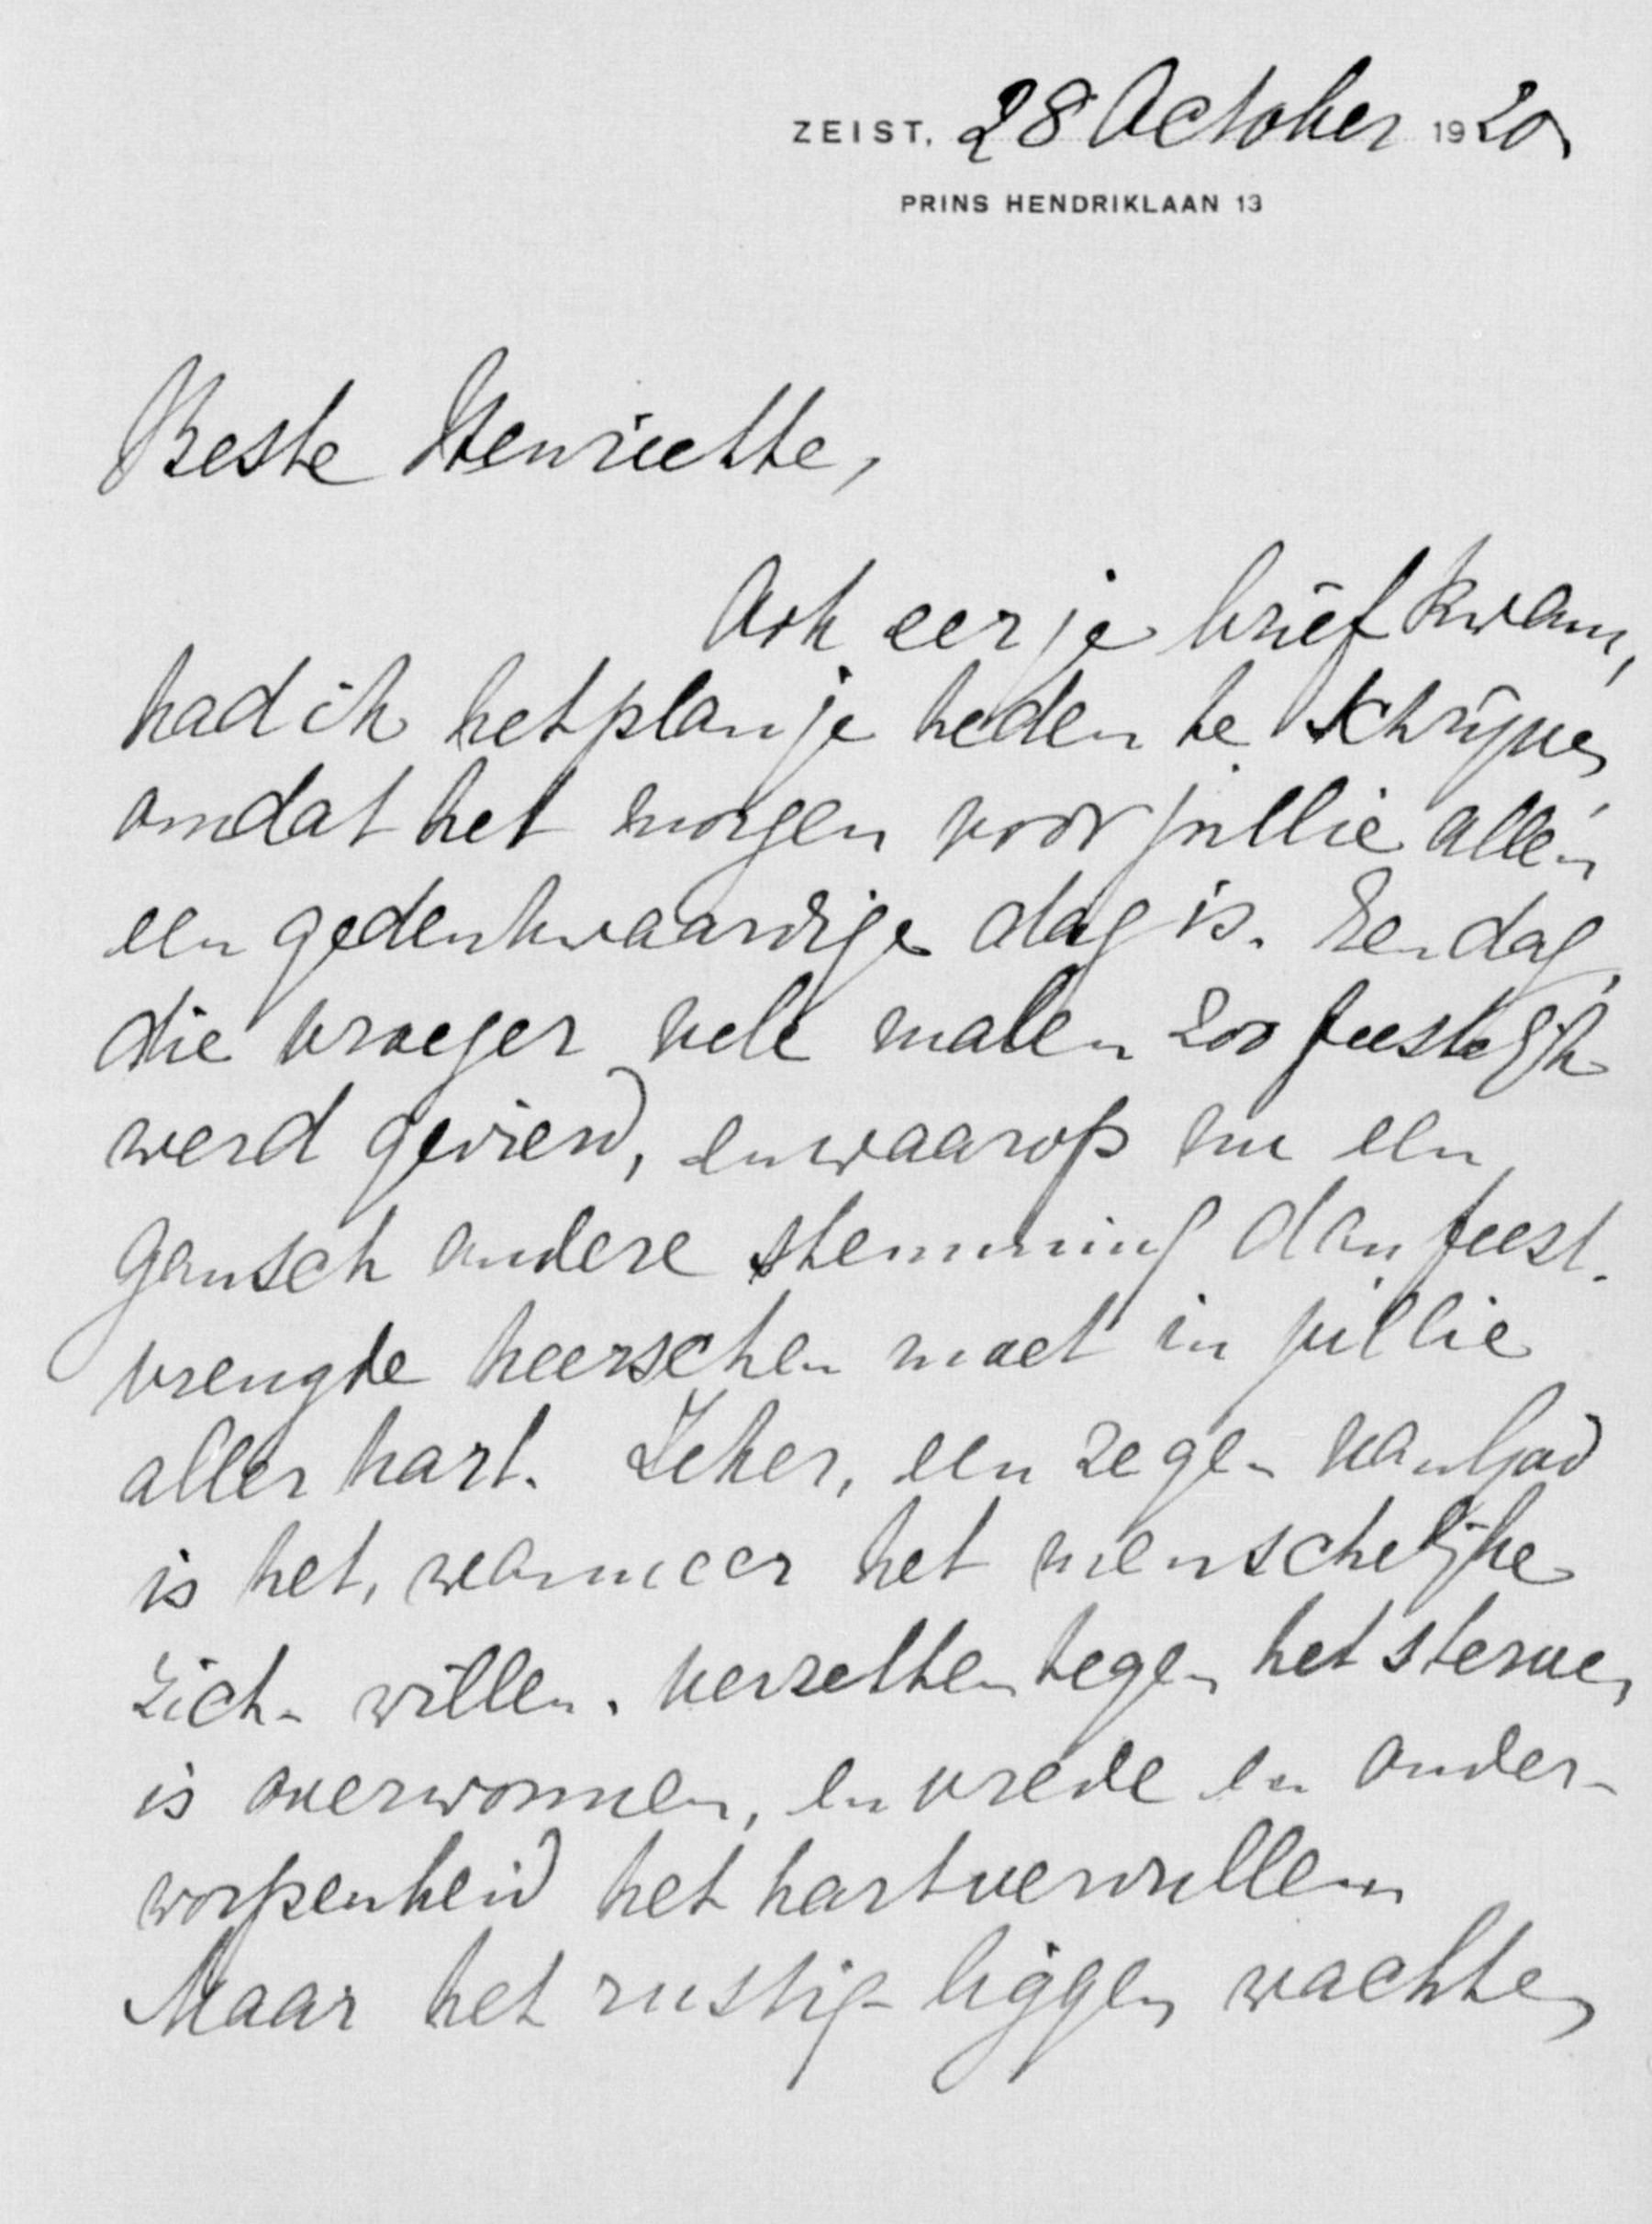 ZEIST, 28 October 1920
PRINS HENDRIKLAAN 13
Beste Henriette,
Ook eer je brief kwam,
had ik het plan je heden te schrijven,
omdat het morgen voor jullie allen
een gedenkwaardige dag is. Een dag,
die vroeger vele malen zoo feestelijk
werd gevierd, en waarop nu een
gansch andere stemming dan feest-
vreugde heerschen moet in jullie
aller hart. Zeker, een zegen van God
is het, wanneer het menschelijke
zich-willen-verzetten tegen het sterven
is overwonnen, en vrede en onder-
worpenheid het hart vervullen.
Maar het rustig-liggen wachten